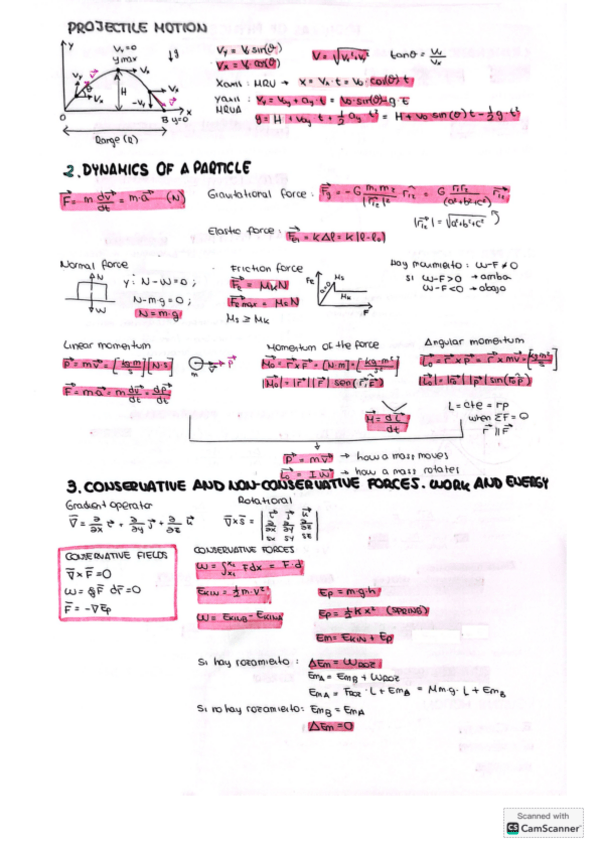 PROJECTILE MOTION
Y
Vy=0
ymax
↓g
Vx
A
Vy
H
-Vy
B y=0
x
O
Range (R)
Vy = V₀ sin(θ)
Vx = V₀ cos(θ)
V = √Vx²+Vy²
tanθ = Vy/Vx
X axis: MRU → X = Vx·t = V₀ cos(θ) t
y axis:
MRUA
y = H + V₀y t + 1/2 ay t² = H + V₀ sin(θ) t - 1/2 g·t²
2. DYNAMICS OF A PARTICLE
F = m dv/dt = m·a (N)
Gravitational force:
(a²+b²+c²)
|r₁₂| = √a²+b²+c²
Elastic force: Fel = K Δl = K |l-l₀|
Normal force
N
W
y: N-W=0;
N-m·g=0;
N=m·g
Friction force
Ff = μk N
Ff max = μs N
μs ≥ μk
Ff
μs
μk
F
Hay movimiento: W-F≠0
si W-F>0 → arriba
W-F<0 → abajo
Linear momentum
P = mv = [kg·m/s] [N·s]
F = ma = m dv/dt = dp/dt
m
v
P
Momentum of the force
M₀ = r x F = [N·m] = [kg·m²/s²]
|M₀| = |r| |F| sen(r̂F)
M = dL/dt
Angular momentum
L₀ = r x P = r x mv = [kg·m²/s]
L = cte = rp
when ΣF=0
r ∥ F
P = mv → how a mass moves
L₀ = I W → how a mass rotates
3. CONSERVATIVE AND NON-CONSERVATIVE FORCES. WORK AND ENERGY
Gradient operator
Rotational
CONSERVATIVE FIELDS
∇ x F = 0
W = ∮ F dr = 0
F = -∇Ep
CONSERVATIVE FORCES
W = ∫ Fdx = F·d
EKIN = 1/2 m·v²
Ep = m·g·h
Ep = 1/2 K x² (SPRING)
W = EKINB - EKINA
Em = EKIN + Ep
Si hay rozamiento: ΔEm = WROZ
EmA = EmB + WROZ
Si no hay rozamiento: EmB = EmA
ΔEm = 0
Scanned with
CS CamScanner